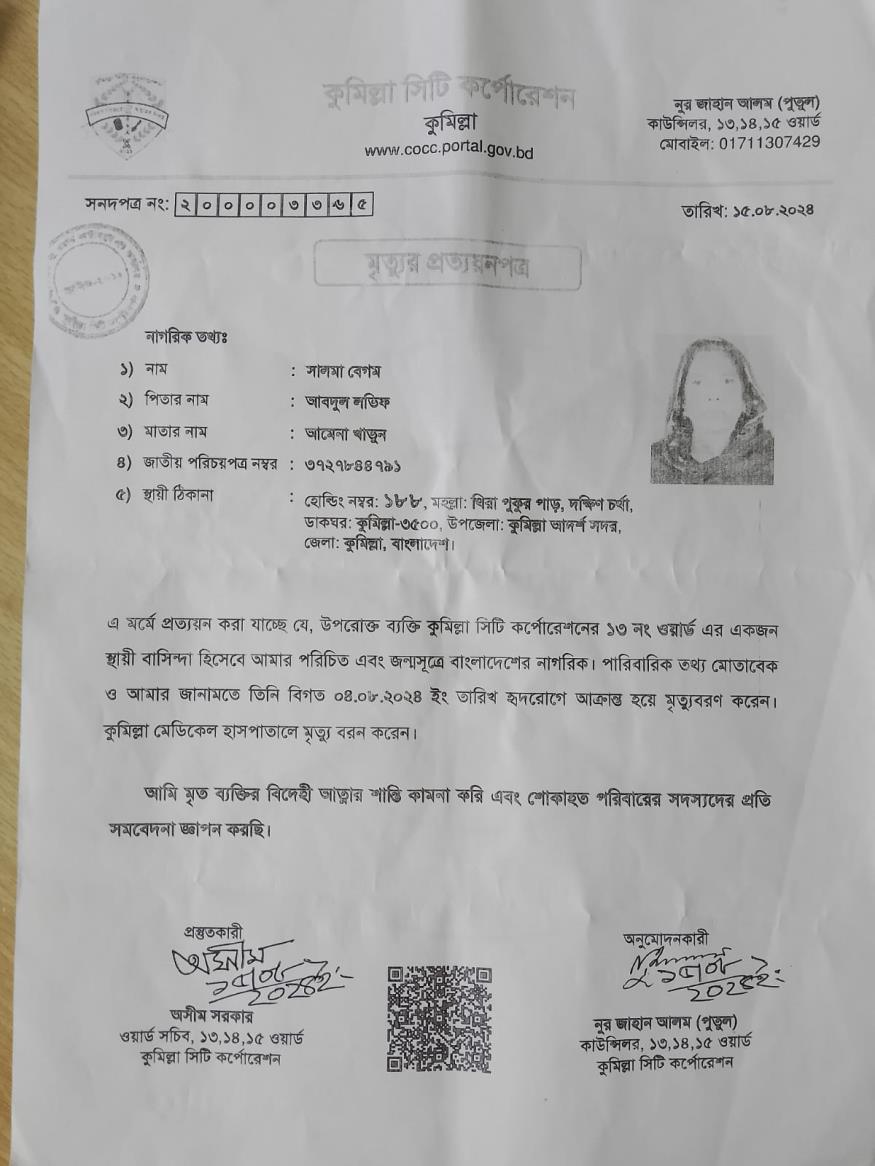 কুমিল্লা সিটি কর্পোরেশন
কুমিল্লা
www.cocc.portal.gov.bd
নুর জাহান আলম (পুতুল)
কাউন্সিলর, ১৩,১৪,১৫ ওয়ার্ড
মোবাইল: 01711307429
সনদপত্র নং: ২০০০০৩৩৬৫
তারিখ: ১৫.০৮.২০২৪
মৃত্যুর প্রত্যয়নপত্র
নাগরিক তথ্যঃ
১) নাম : সালমা বেগম
২) পিতার নাম : আবদুল লতিফ
৩) মাতার নাম : আমেনা খাতুন
৪) জাতীয় পরিচয়পত্র নম্বর : ৩৭২৭৮৪৪৭৯১
৫) স্থায়ী ঠিকানা : হোল্ডিং নম্বর: ১৮৮, মহল্লা: থিরা পুকুর পাড়, দক্ষিণ চর্থা,
ডাকঘর: কুমিল্লা-৩৫০০, উপজেলা: কুমিল্লা আদর্শ সদর,
জেলা: কুমিল্লা, বাংলাদেশ।
এ মর্মে প্রত্যয়ন করা যাচ্ছে যে, উপরোক্ত ব্যক্তি কুমিল্লা সিটি কর্পোরেশনের ১৩ নং ওয়ার্ড এর একজন
স্থায়ী বাসিন্দা হিসেবে আমার পরিচিত এবং জন্মসূত্রে বাংলাদেশের নাগরিক। পারিবারিক তথ্য মোতাবেক
ও আমার জানামতে তিনি বিগত ০৪.০৮.২০২৪ ইং তারিখ হৃদরোগে আক্রান্ত হয়ে মৃত্যুবরণ করেন।
কুমিল্লা মেডিকেল হাসপাতালে মৃত্যু বরন করেন।
আমি মৃত ব্যক্তির বিদেহী আত্নার শান্তি কামনা করি এবং শোকাহত পরিবারের সদস্যদের প্রতি
সমবেদনা জ্ঞাপন করছি।
প্রস্তুতকারী
অসীম সরকার
ওয়ার্ড সচিব, ১৩,১৪,১৫ ওয়ার্ড
কুমিল্লা সিটি কর্পোরেশন
অনুমোদনকারী
নুর জাহান আলম (পুতুল)
কাউন্সিলর, ১৩,১৪,১৫ ওয়ার্ড
কুমিল্লা সিটি কর্পোরেশন